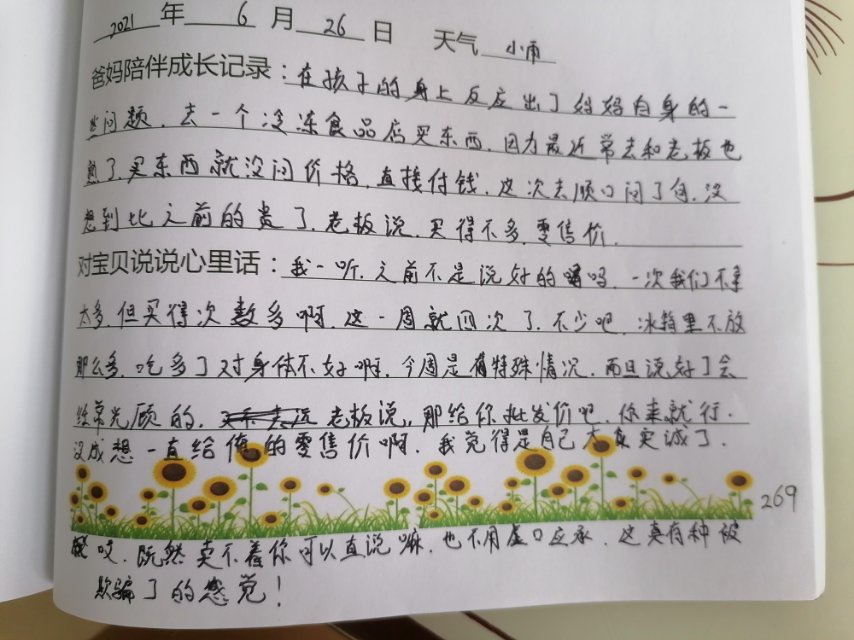 2021年 6月 26日 天气 小雨
爸妈陪伴成长记录：在孩子的身上反应出了妈妈自身的一
些问题，去一个冷冻食品店买东西，因为最近常去和老板也
熟了，买东西就没问价格，直接付钱，这次去顺口问了句，没
想到比之前的贵了，老板说，买得不多，零售价，
对宝贝说说心里话：我一听，之前不是说好的吗，一次我们不拿
太多，但买得次数多啊，这一周就四次了，不少吧，冰箱里不放
那么多，吃多了对身体不好啊，今周是有特殊情况，而且说好了会
经常光顾的，老板说，那给你批发价吧，你来就行.
没成想一直给俺的零售价啊，我觉得是自己太真实诚了，
269
哎，既然卖不着你可以直说嘛，也不用虚口应承，这真有种被
欺骗了的感觉！